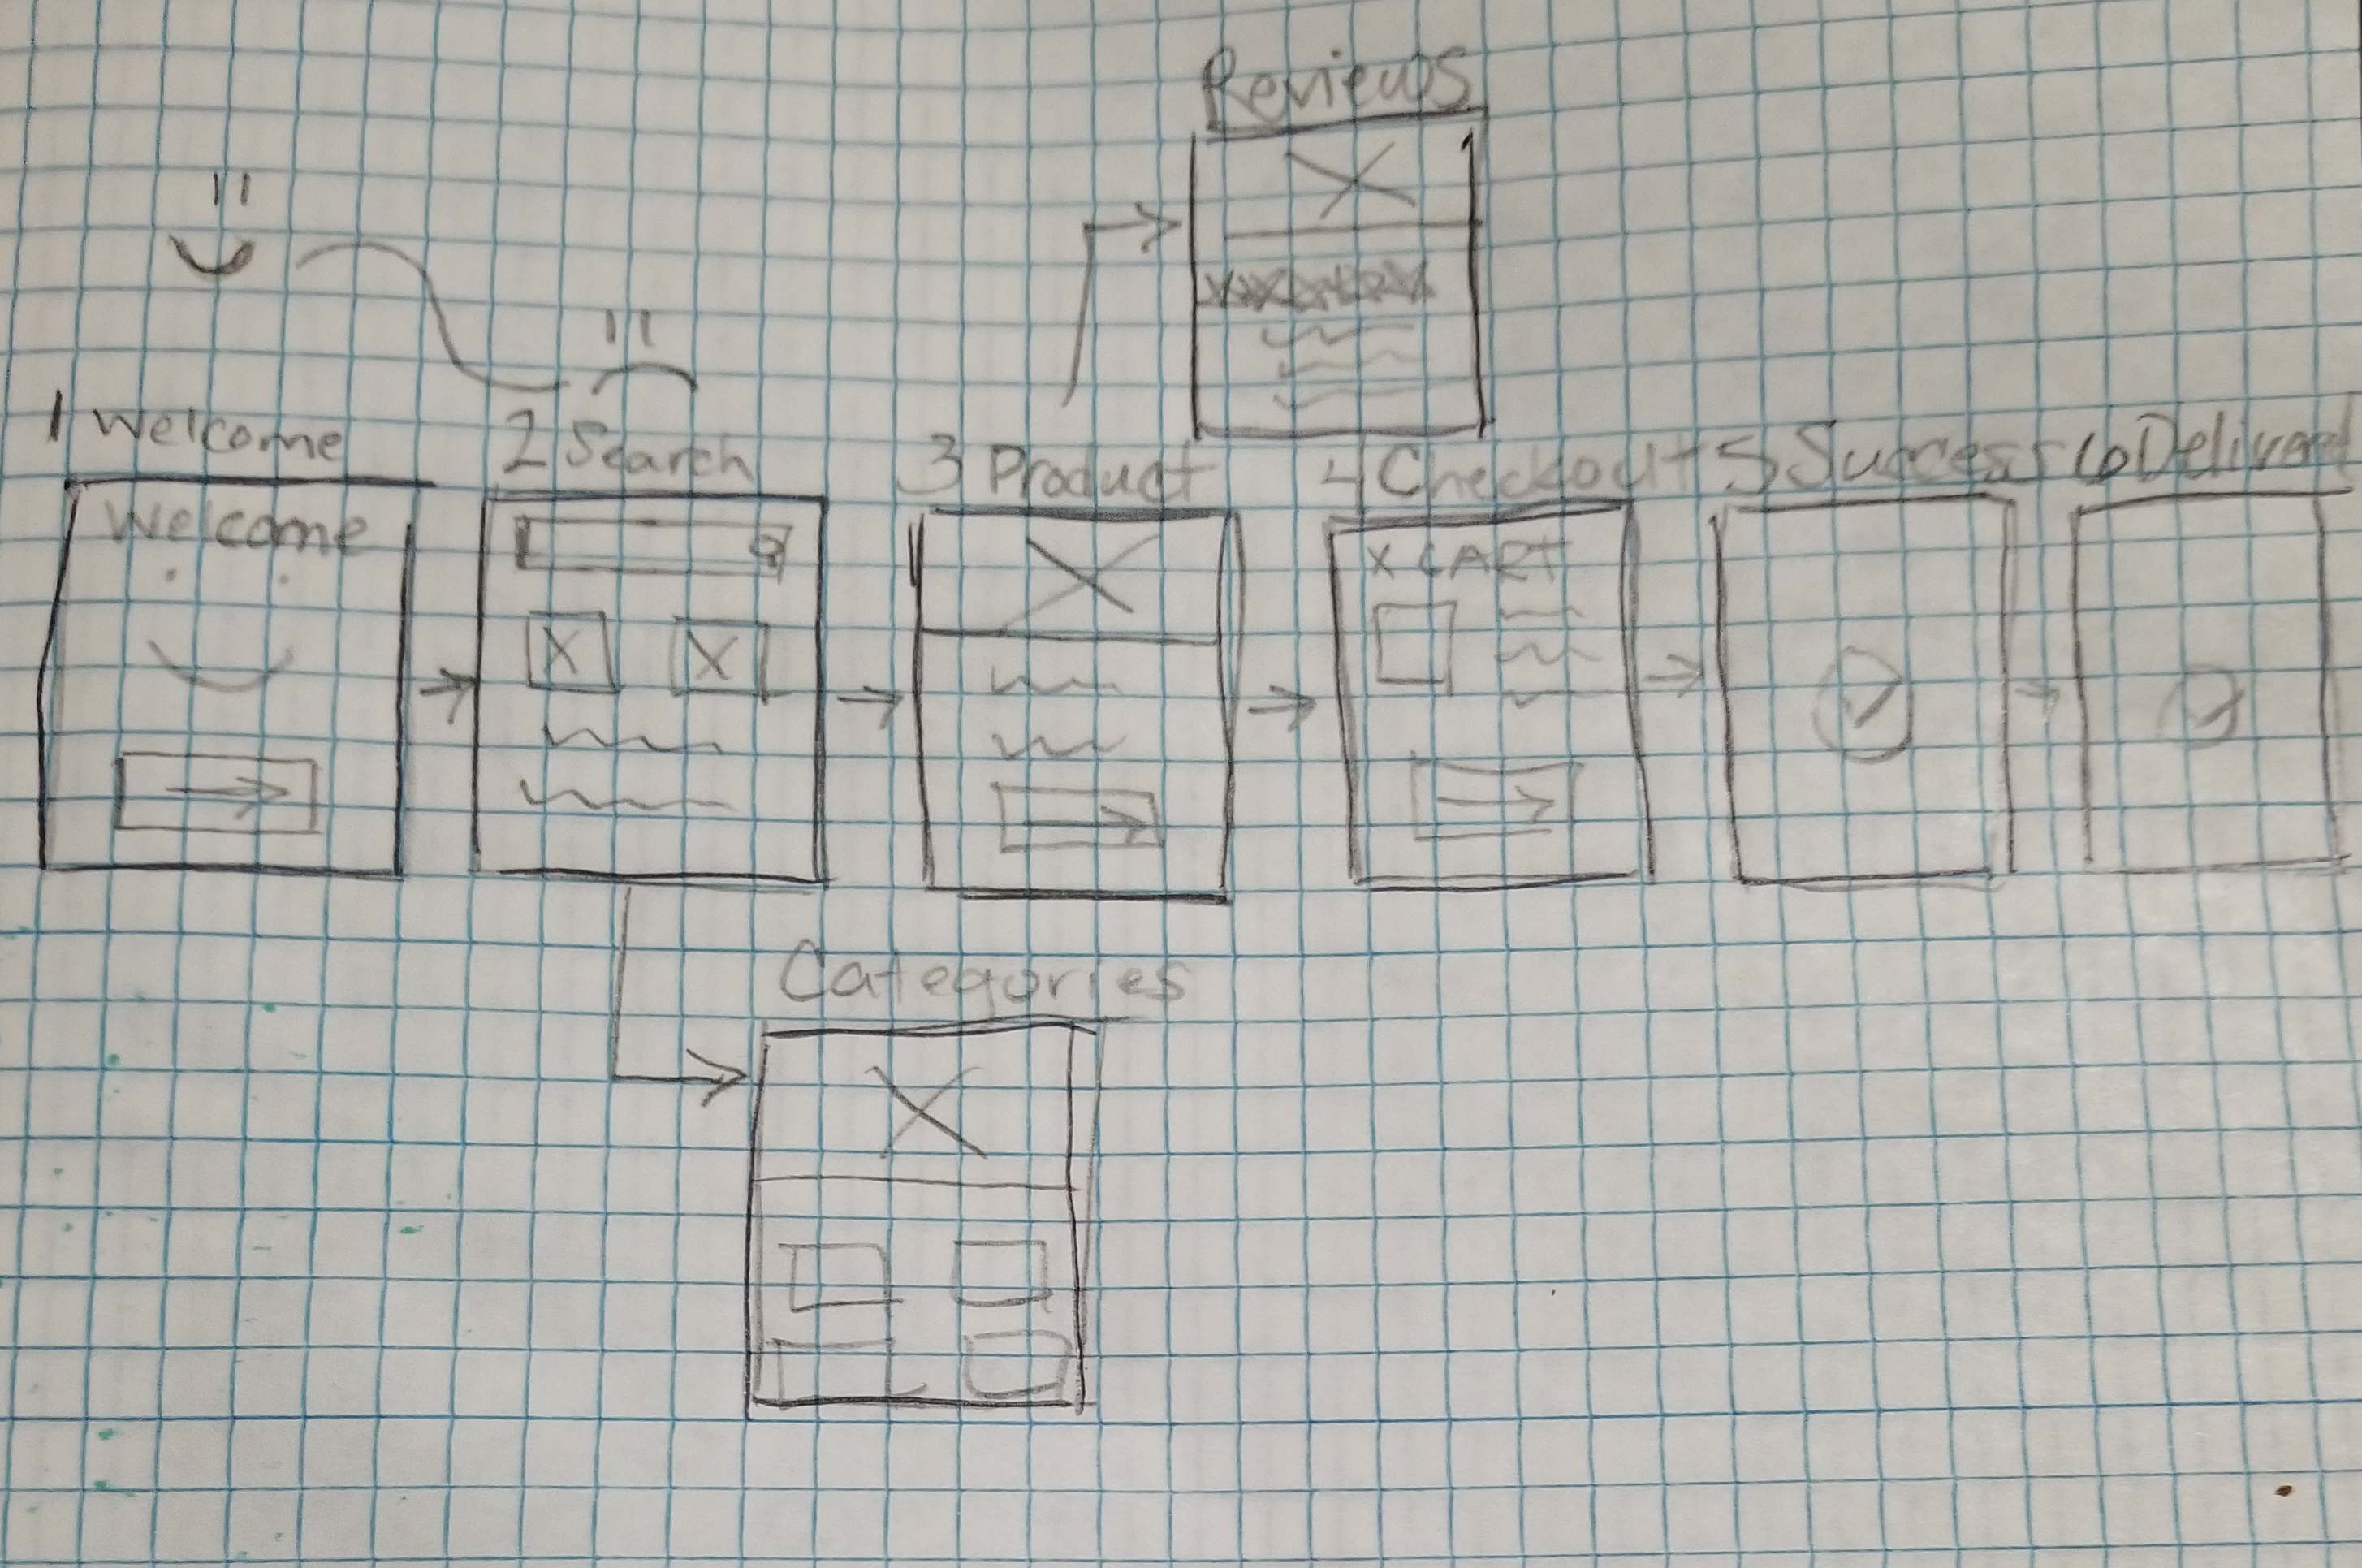 Reviews
1 Welcome
2 Search
3 Product
4 Checkout
5 Success
6 Delivered
Welcome
X CART
Categories